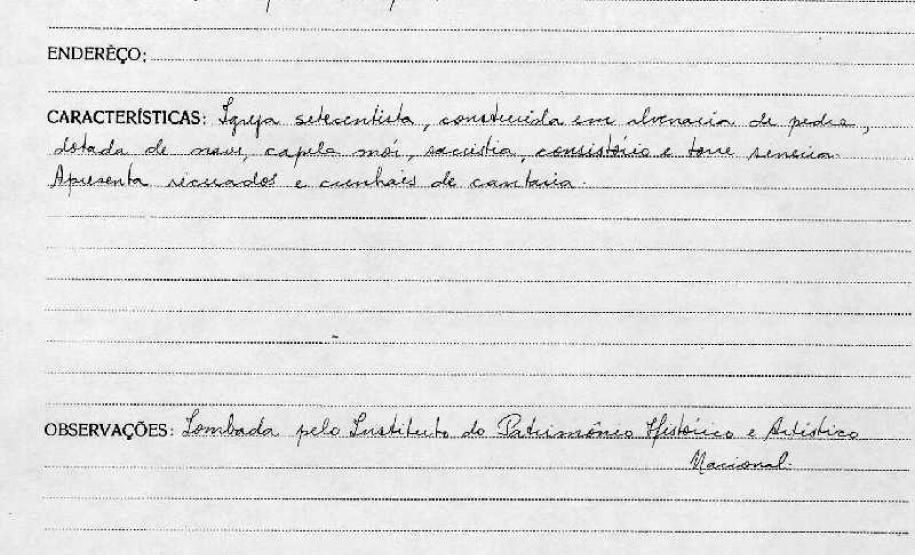 ENDERÊÇO:
CARACTERÍSTICAS: Igreja setecentista, construida em alvenaria de pedra,
dotada de nave, capela mór, sacristia, consistório e torre sineira.
Apresenta recuados e cunhais de cantaria.
OBSERVAÇÕES: Tombada pelo Instituto do Patrimônio Histórico e Artístico
Nacional.